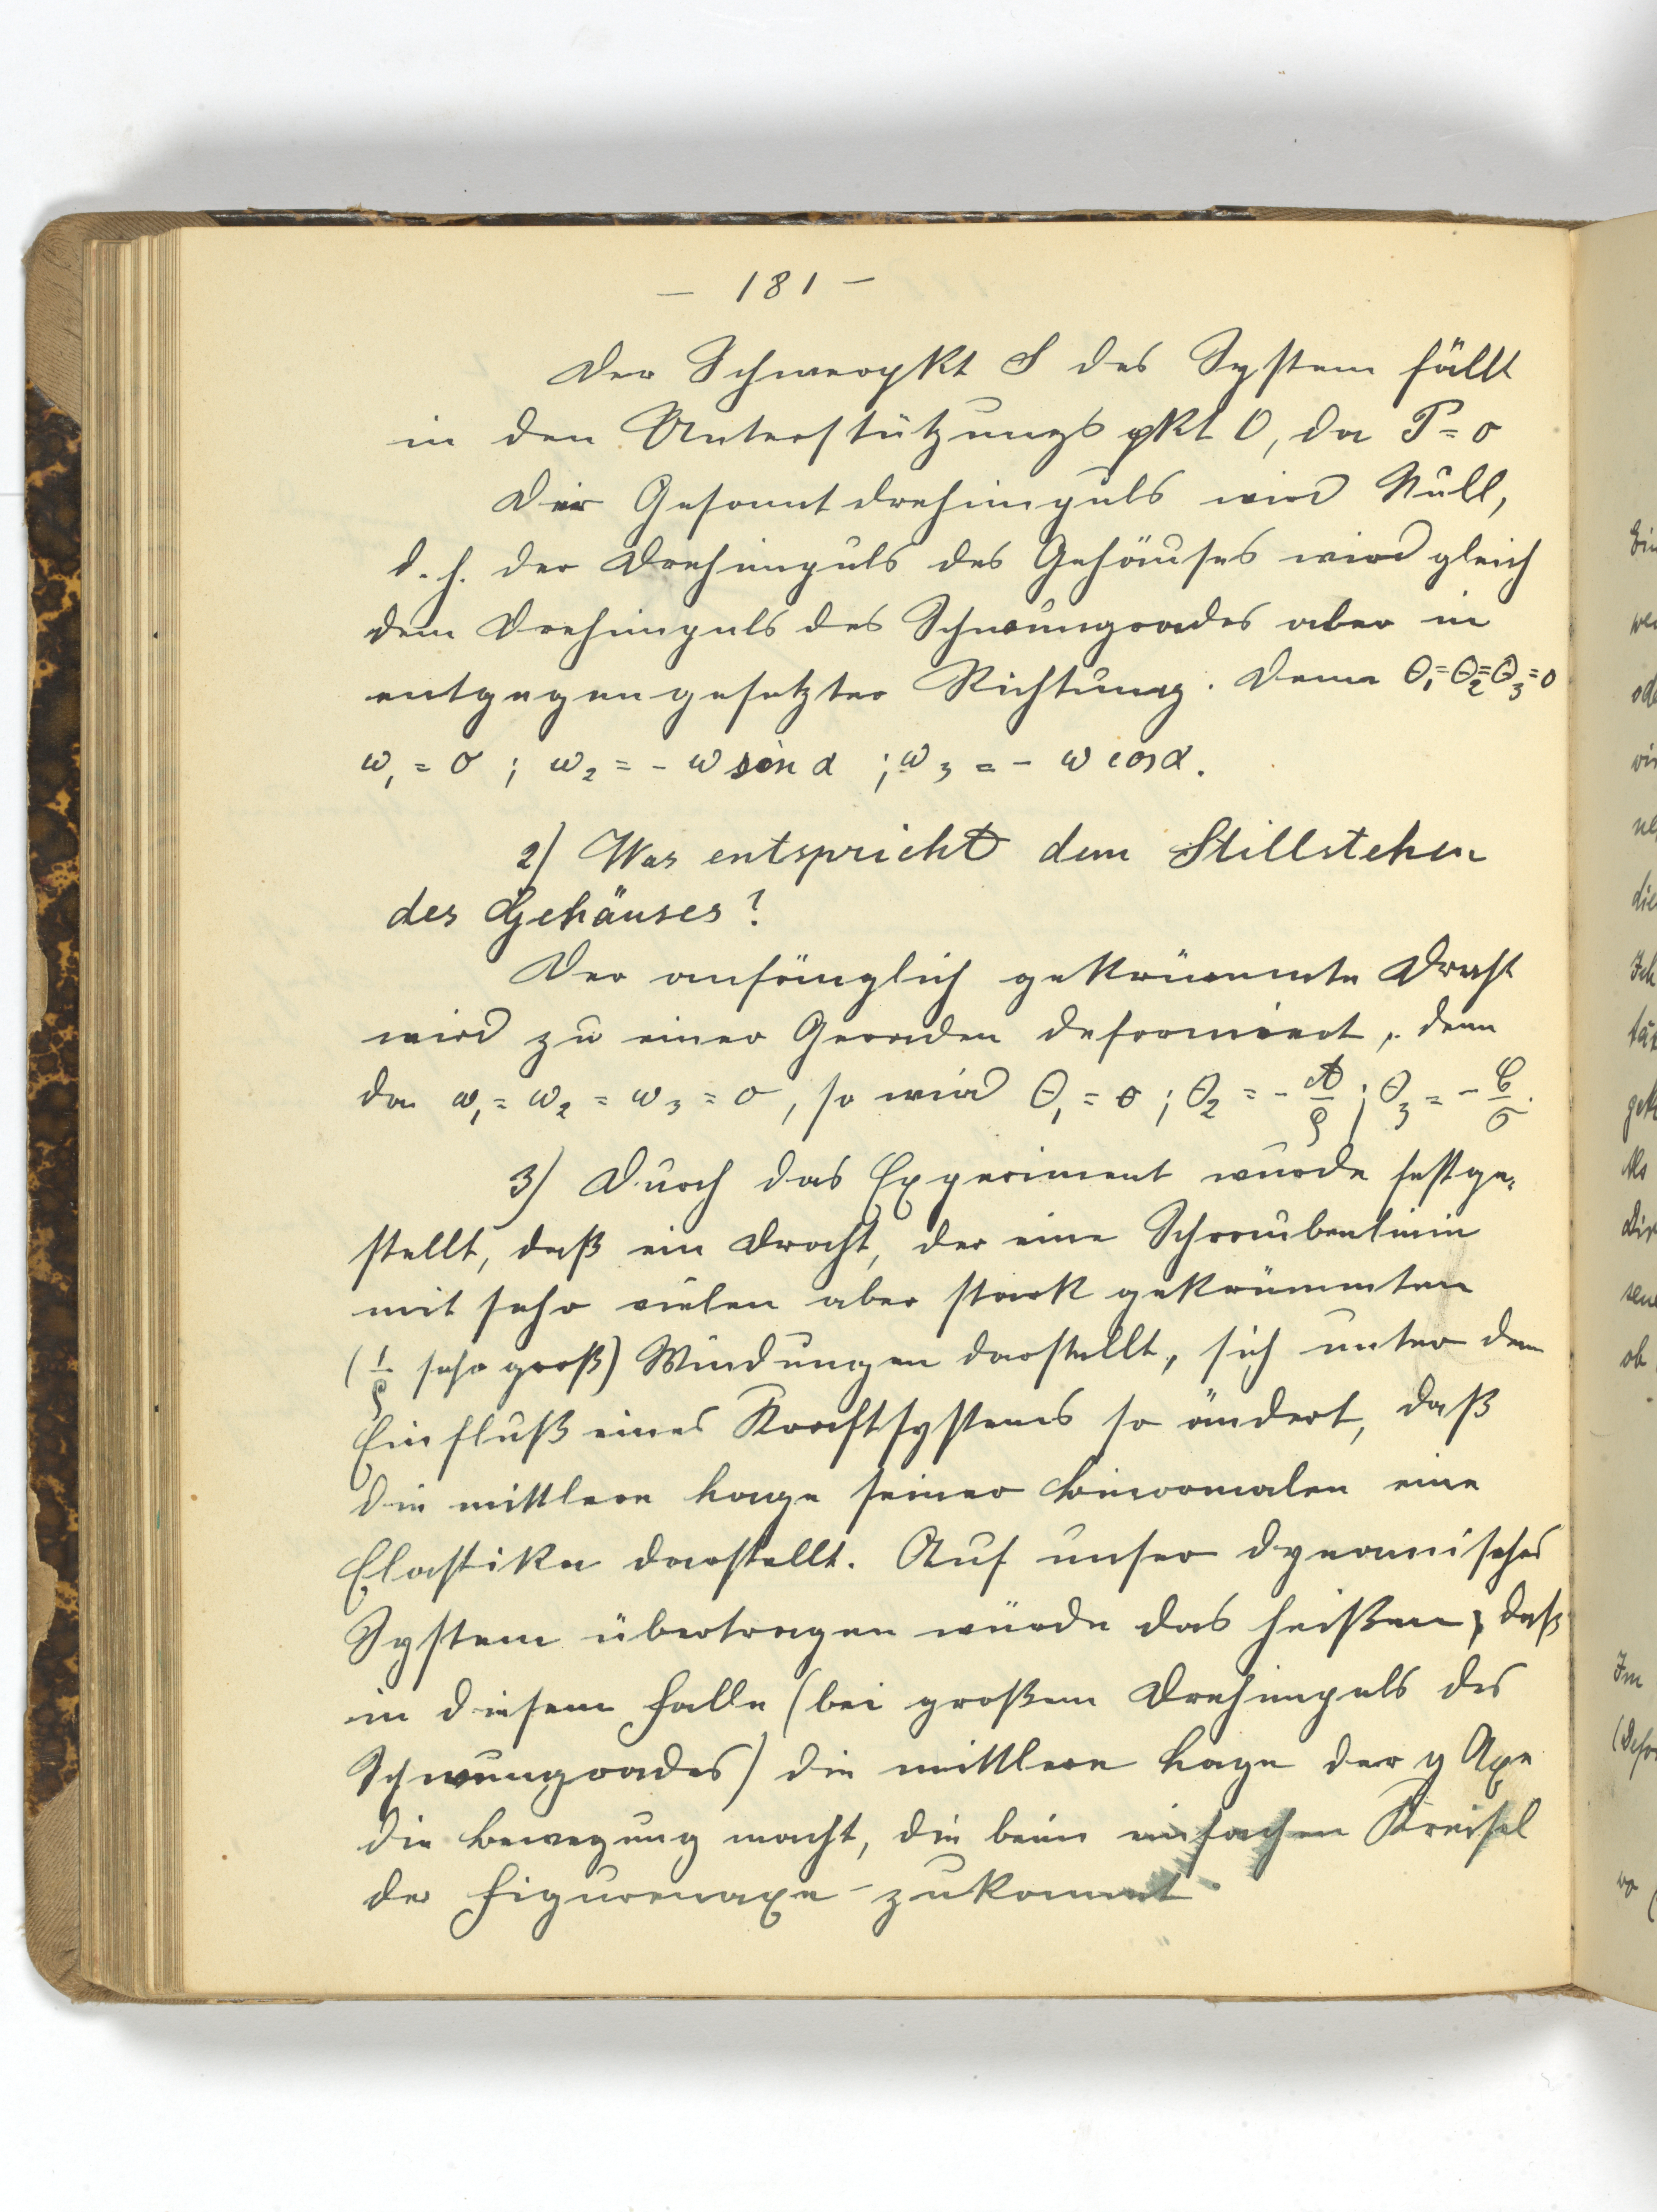 — 181 —
Der Schwerpkt S des System fällt
in den Unterstützungspkt O, da P = o
Der Gesamtdrehimpuls wird Null,
d. h. der Drehimpuls des Gehäuses wird gleich
dem Drehimpuls des Schwungrades aber in
entgegengesetzter Richtung. Denn Θ₁=Θ₂=Θ₃=0
ω₁ = 0 ; ω₂ = - ω sin α ; ω₃ = - ω cos α.
2) Was entspricht dem Stillstehen
des Gehäuses?
Der anfänglich gekrümmte Draht
wird zu einer Geraden deformiert, denn
da ω₁ = ω₂ = ω₃ = 0, so wird Θ₁ = 0 ; Θ₂ = - A/ρ ; Θ₃ = - C/σ.
3) Durch das Experiment wurde festge-
stellt, daß ein Draht, der eine Schraubenlinie
mit sehr vielen aber stark gekrümmten
(1/ρ sehr groß) Windungen darstellt, sich unter dem
Einfluß eines Kraftsystems so ändert, daß
die mittlere Lage seiner Binormalen eine
Elastika darstellt. Auf unser dynamisches
System übertragen würde das heißen, daß
in diesem Falle (bei großem Drehimpuls des
Schwungrades) die mittlere Lage der y Axe
die Bewegung macht, die beim einfachen Kreisel
der Figurenaxe zukommt.